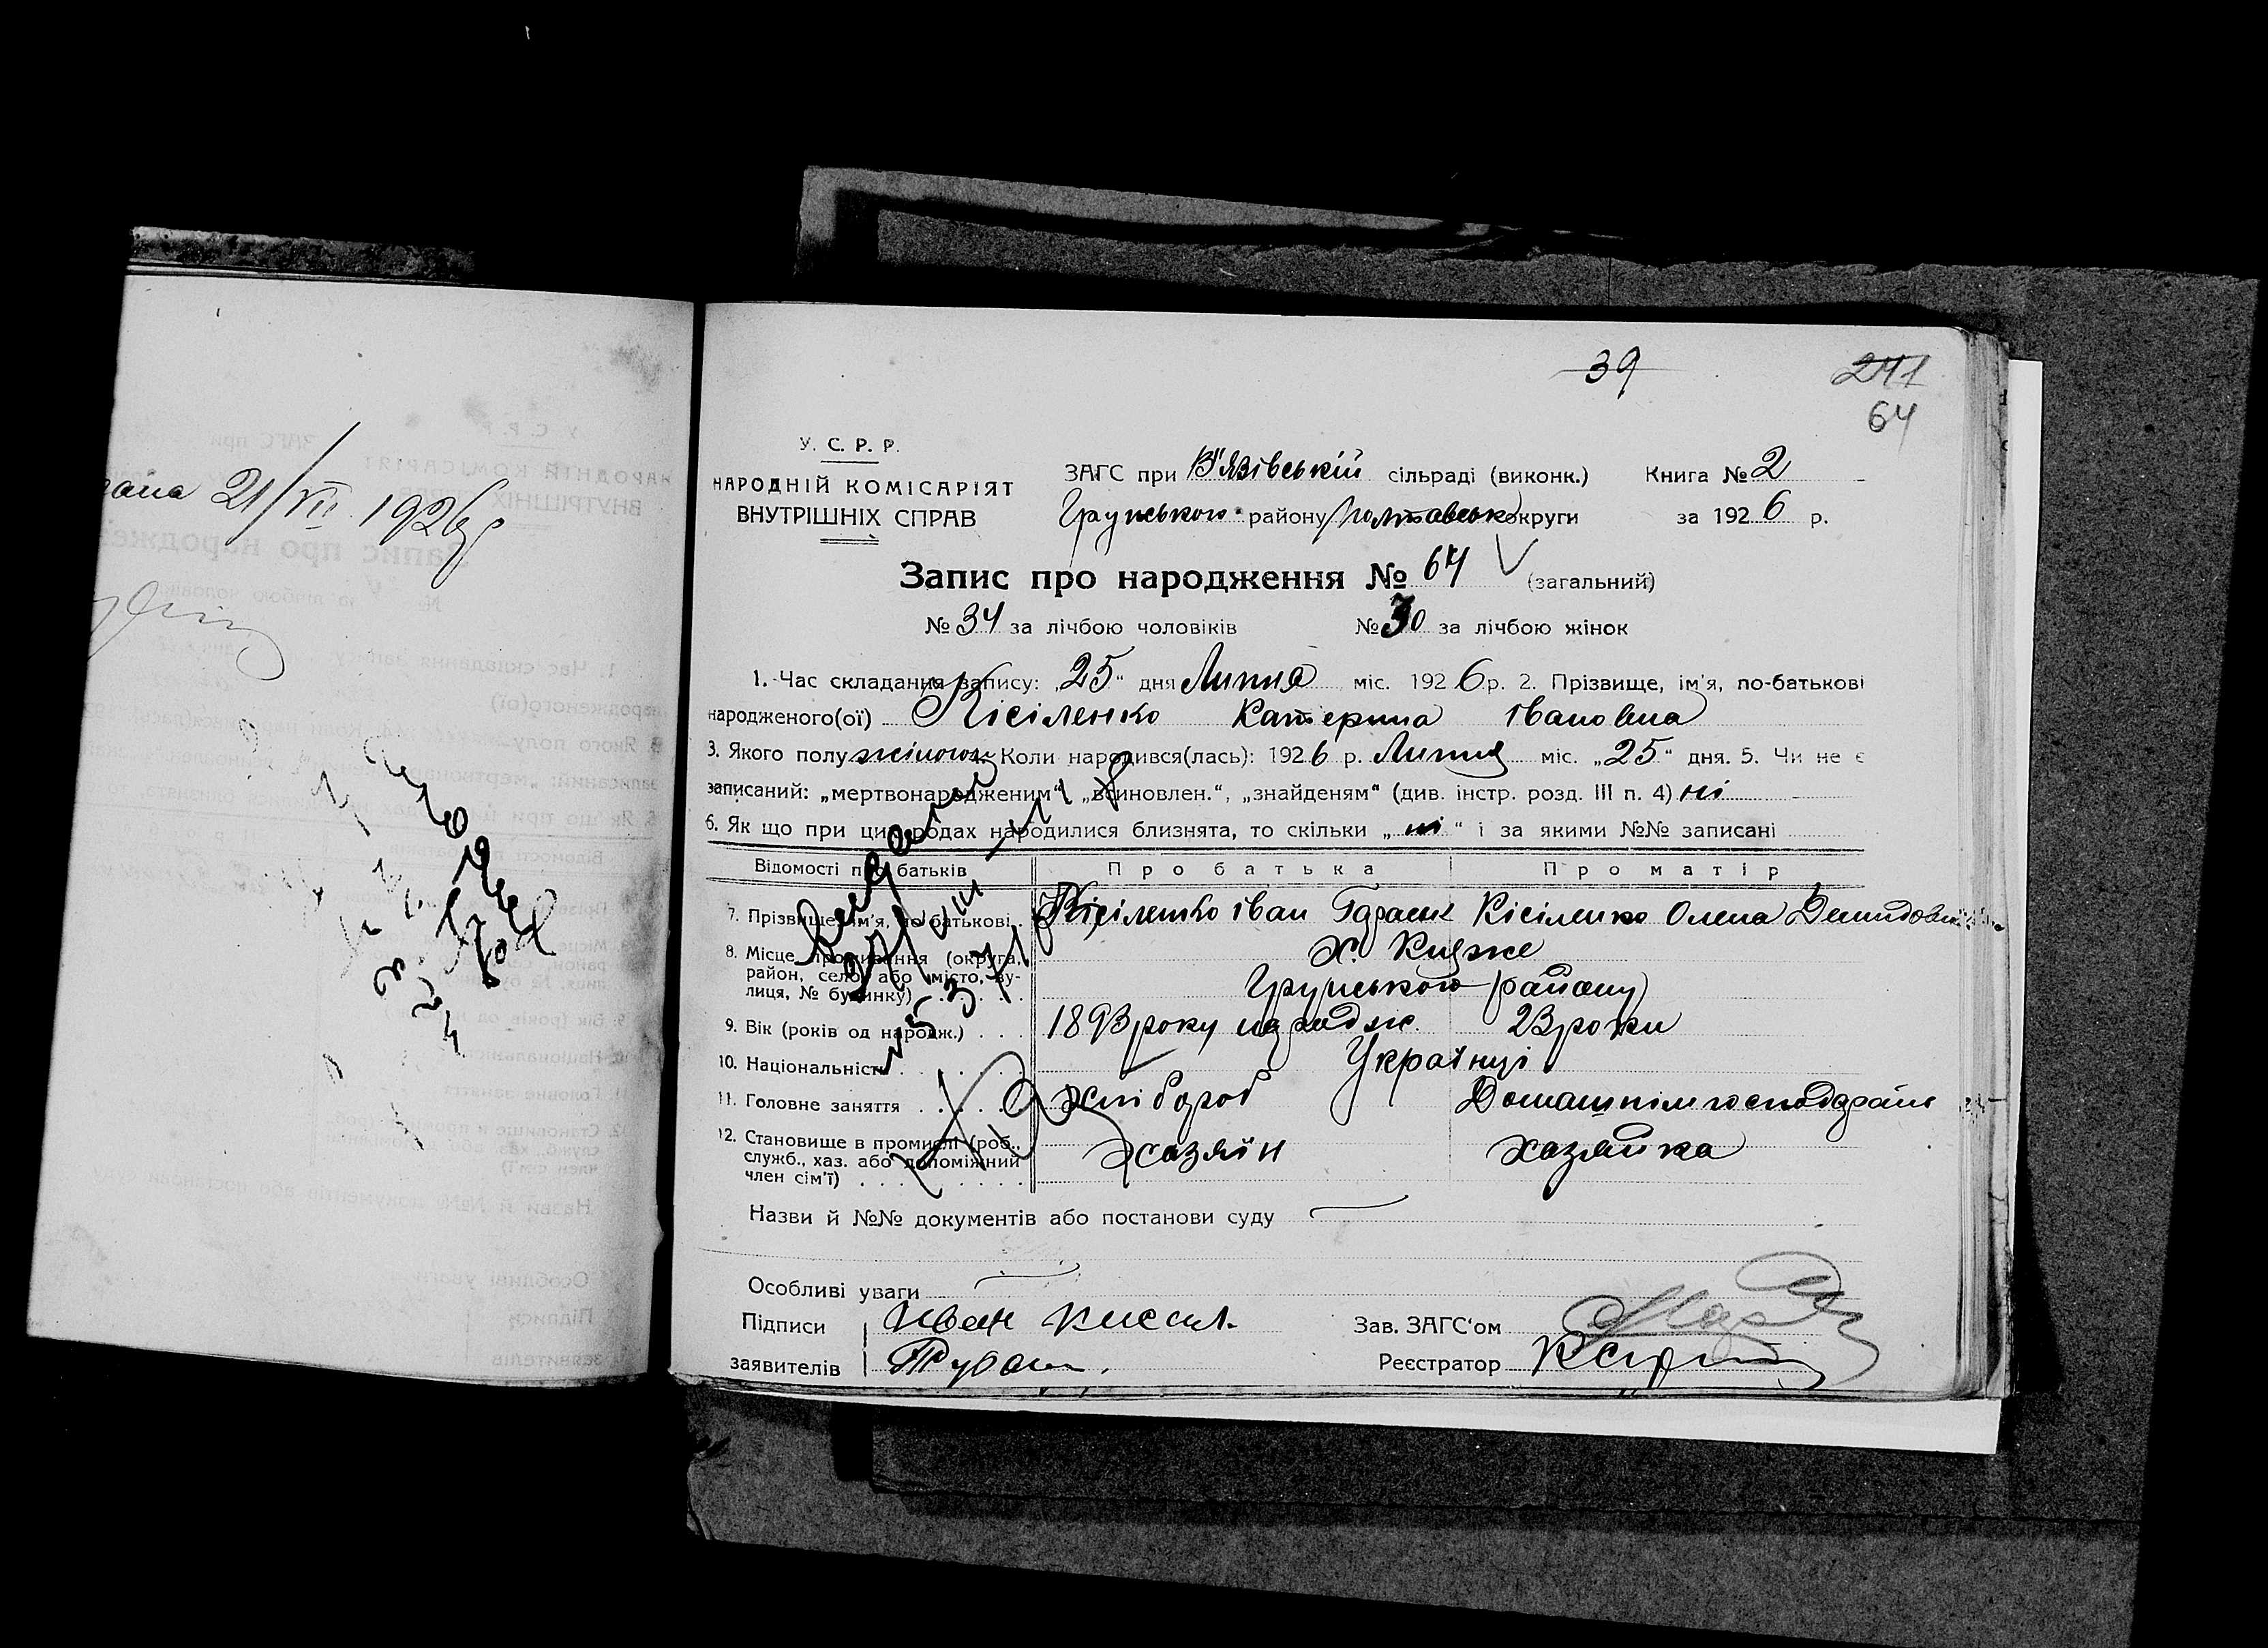 39
241
64
У. С. Р. Р.
НАРОДНІЙ КОМІСАРІЯТ
ВНУТРІШНІХ СПРАВ
ЗАГС при В'язівській сільраді (виконк.) Книга № 2
Грунського району Полтавсько округи за 1926 р.
Запис про народження № 64 (загальний)
№ 34 за лічбою чоловіків № 30 за лічбою жінок
1. Час складання запису: „25“ дня Липня міс. 1926 р. 2. Прізвище, ім'я, по-батькові
народженого(ої) Кісіленко Катерина Івановна
3. Якого полу жіночого Коли народився(лась): 1926 р. Липня міс. „25“ дня. 5. Чи не є
записаний: „мертвонародженим“, „всиновлен.“, „знайденям“ (див. інстр. розд. III п. 4) ні
6. Як що при цих родах народилися близнята, то скільки „ні“ і за якими №№ записані
Відомості про батьків Про батька Про матір
7. Прізвище, ім'я, по-батькові. Кісіленко Іван Гарасим Кісіленко Олена
8. Місце проживання (округа,
район, село, або місто, вулиця, № будинку) х.
Грунського району
9. Вік (років од народж.) 1893 року народж. 23 роки
10. Національність Українці
11. Головне заняття Хлібороб Домашнім
12. Становище в промислі (роб.,
служб., хаз. або допоміжний
член сім'ї) Хозяїн хазяйка
Назви й №№ документів або постанови суду
Особливі уваги
Підписи Иван Кисил.
заявителів
Зав. ЗАГС'ом
Реєстратор
21/VII 1926 р